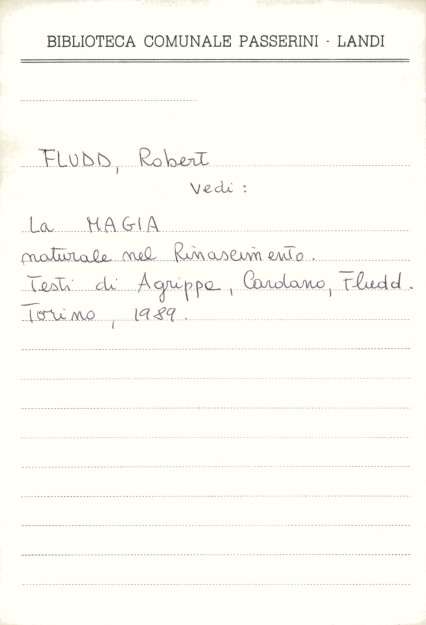 BIBLIOTECA COMUNALE PASSERINI - LANDI
FLUDD, Robert
Vedi :
La MAGIA
naturale nel Rinascimento.
Testi di Agrippa, Cardano, Fludd.
Torino, 1989.